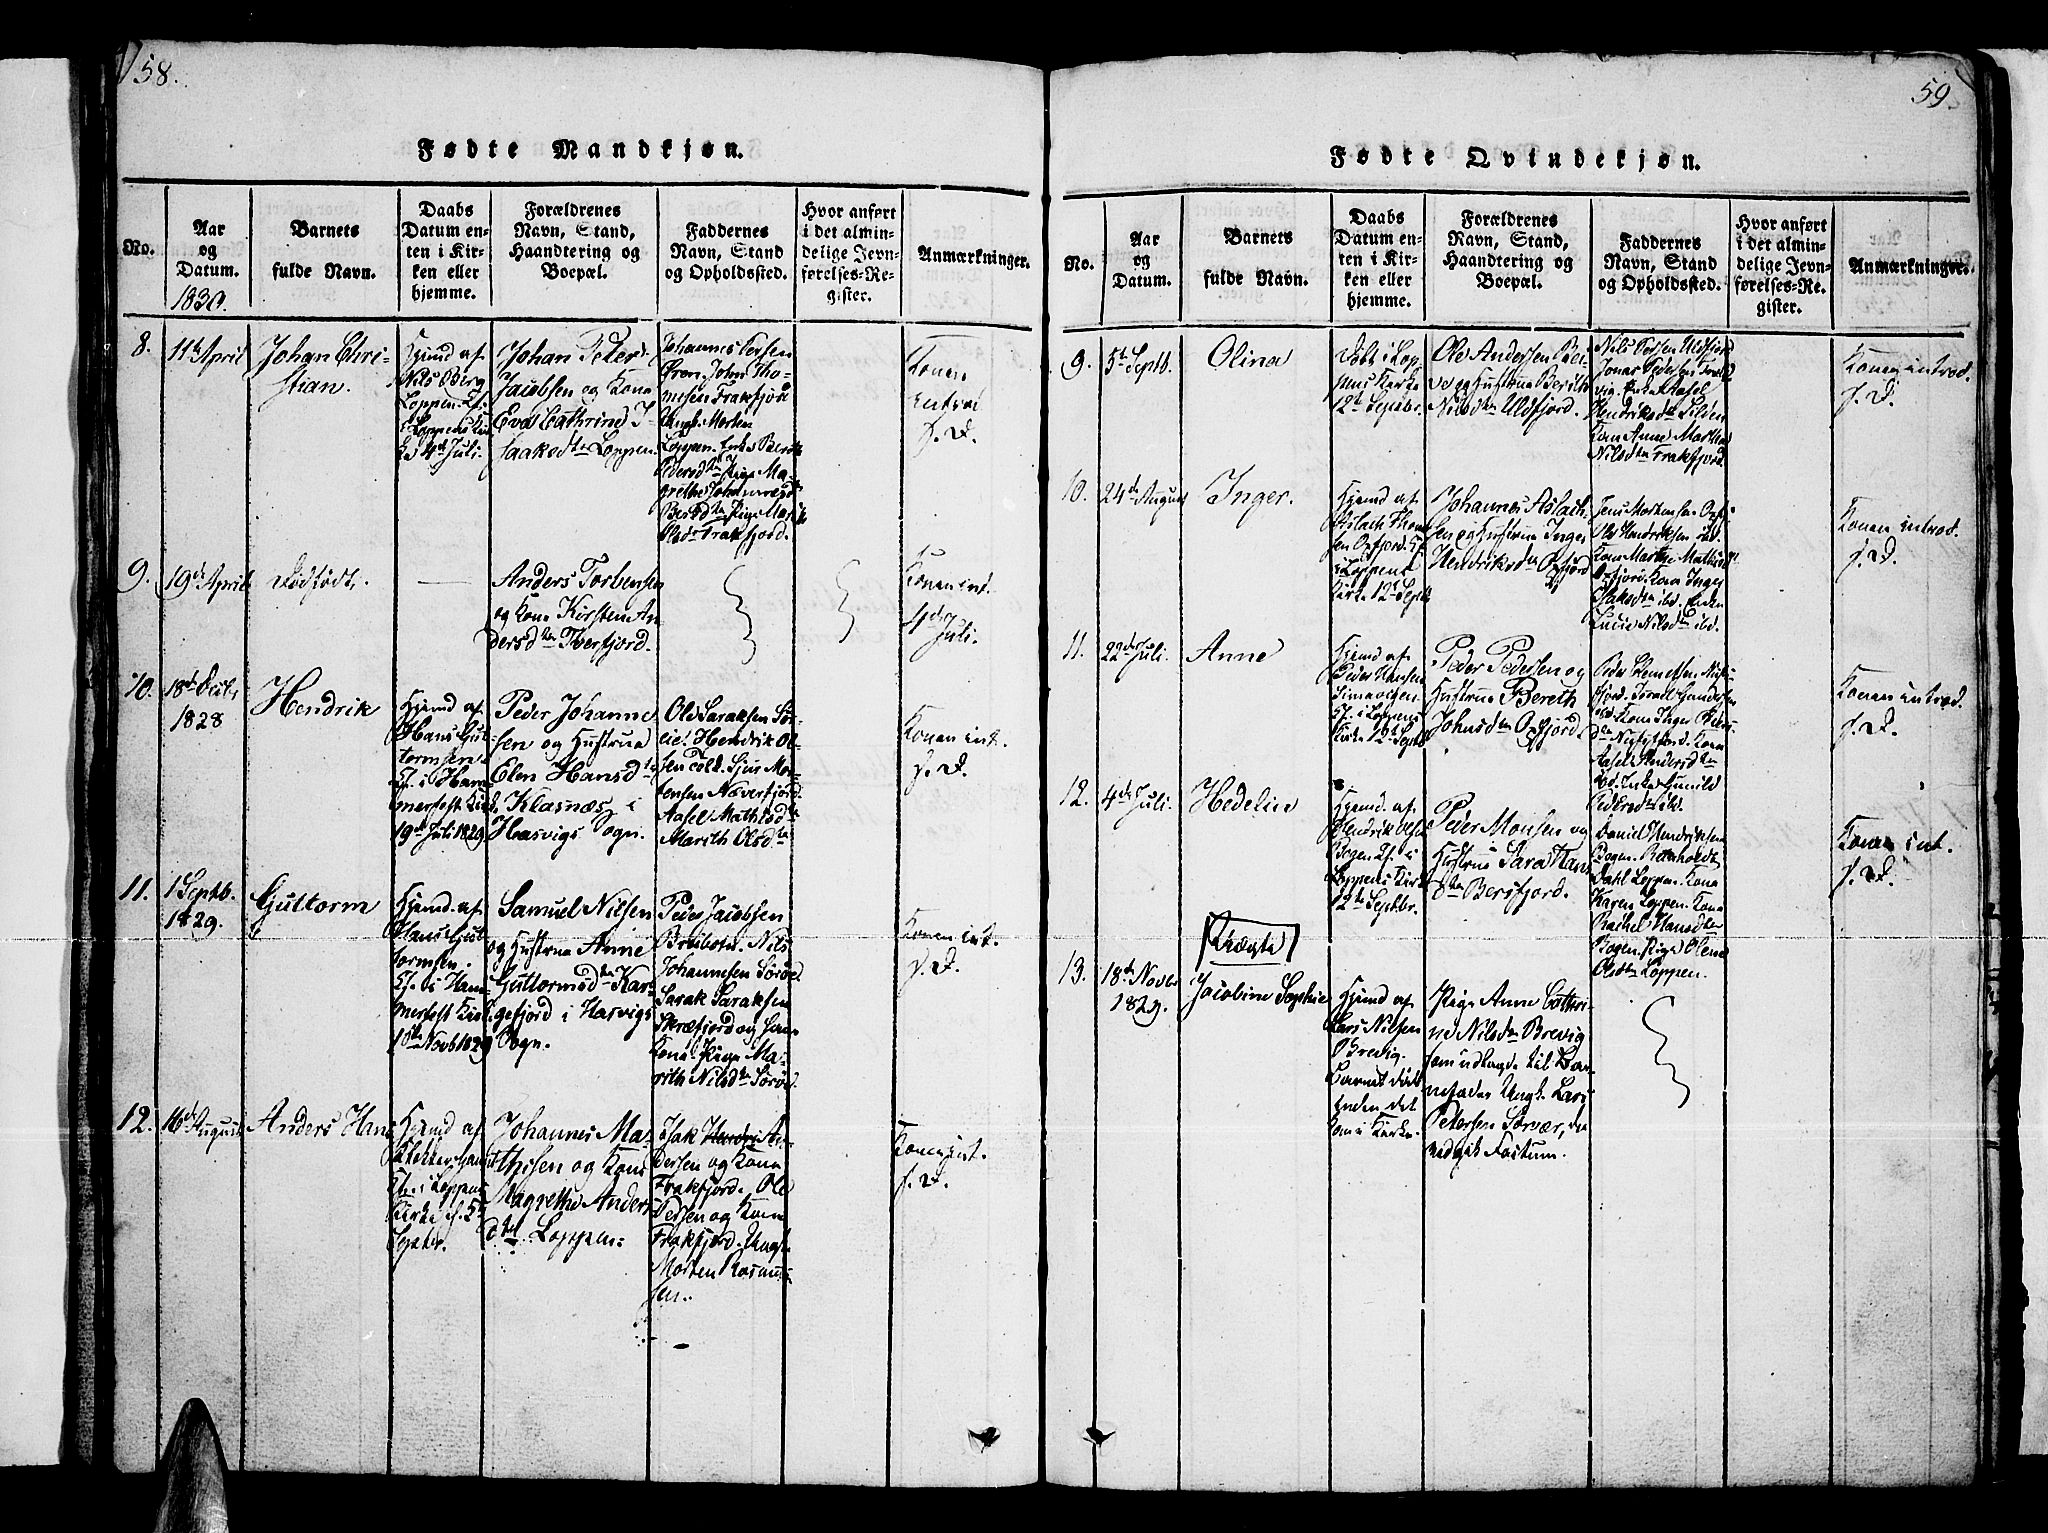 58.
Fødte Mandkjøn.
No.
Aar
og
Datum.
1830.
Barnets
fulde Navn.
Daabs
Datum en-
ten i Kir-
ken eller
hjemme.
Forældrenes
Navn, Stand,
Haandtering og
Boepæl.
Faddernes
Navn, Stand
og Opholdssted.
Hvor anført
i det almin-
delige Jevn-
førelses-Re-
gister.
Anmærkninger.
8.
11te April
Johan Chri-
stian.
Hjemd af
Nils Berg
Loppen. Cf.
i Loppens Kir
ke 4de Juli.
Johan Peter
Jacobsen og Kone
Eva Cathrine I-
saaksdtr Loppen.
Johannes Persen
Øren, John Tho-
mesen Frakfjord
Ungk. Morten
Loppen. Enke Berith
Pedersdtr Pige Ma-
grethe
Olsdr Frakfjord.
Konen
introd.
s. D.
9.
19de April
Dødfødt.
Anders Torbensen
og Kone Kirsten An
dersdtr Tverfjord.
Konen int.
4de
Juli.
10.
18de
1828
Hendrik
Hjemd af
Hans Gut-
tormsen
Cf. i Ham
merfest Kirke
19de Juli 1829
Peder Johanne
sen og Hustrue
Elen Hansdtr
Klasnæs i
Hasvigs Sogn.
Ole Saraksen Sør-
Hendrik Ol-
sen
tensen Næverfjord
Aasel Mathisdtr
Marith Olsdtr
Konen int.
s. D.
11.
1 Septb.
1829.
Guttorm
Hjemd. af
Hans Gut
tormsen.
Cf. i Ham
merfest Kirke.
1ste Novb 1829
Samuel Nilsen
og Hustrue Anne
Guttormsdtr Kar
gefjord i Hasvigs
Sogn.
Peder Jacobsen
Breibotn. Nils
Johannesen Sørøe
Sarak Saraksen
Skræfjord og
Kone. Pige Ma-
rith Nilsdtr Sørøe
Konen int.
s. D.
12.
16de August
Anders Hans
Hjemd af
Cf. i Loppens
Kirke d. 5te
Septbr.
Johannes Ma-
thisen og Kone
Magrethe Anders
dtr Loppen.
Isak Hendri An-
dersen og Kone
Frakfjord. Ole
Persen og Kone
Frakfjord. Ungk.
Morten Rasmus-
sen.
Konen int.
s. D.
59.
Fødte Qvindekjøn.
No.
Aar
og
Datum.
Barnets
fulde Navn.
Daabs
Datum en-
ten i Kir-
ken eller
hjemme.
Forældrenes
Navn, Stand,
Haandtering og
Boepæl.
Faddernes
Navn, Stand
og Opholdssted.
Hvor anført
i det almin-
delige Jevn-
førelses-Re-
gister.
Anmærkninger.
9.
5te Septb.
Olina
Døbt i Lop
pens Kirke
12te Septbr.
Ole Andersen
og Hustrue Berith
Nilsdtr Uldfjord.
Nils Persen Uldfjord
Jonas Pedersen
vig. Enke Aasel
Hendriksdtr Silden
Kone Anne Martha
Nilsdtr Frakfjord.
Konen introd.
s. D.
10.
24de August
Inger.
Hjemd af
Aslach Thom
sen Oxfjord. Cf
i Loppens
Kirke 12te Septb
Johannes Aslach-
sen og Hustrue Inger
Hendriksdtr Oxfjord
Jens Mortensen Oxf.
Ole Hendriksen ibd.
Kone Marthe Mathisd.
Oxfjord. Kone Inger
Isaksdtr ibd. Enken
Lucie Nilsdtr ibd.
Konen introd.
s. D.
11.
22de Juli.
Anne
Hjemd af
Peder Hansen
Simavigen.
Cf. i Loppens
Kirke 12te Septb
Peder Pedersen og
Hustrue Bereth
Johnsdtr Oxfjord.
Peder Klemetsen
ibd. Kone Inger Peders
Kone
Aasel Andersdtr
ibd. Enke Gunild
Pedersdtr ibd.
Konen introd.
s. D.
12.
4de Juli.
Hedelin
Hjemd. af
Hendrik Olsen
Bogen Cf. i
Loppens Kirke
12te Septbr.
Peder Monsen og
Hustrue Sara Hans
dtr Bersfjord.
Daniel Hendriksen
Bogen. Reinholdt
Dahl Loppen. Kone
Karen Loppen. Kone
Rachel Hansdtr
Bogen. Pige Olene
Olsdtr Loppen.
Konen int.
s. D.
Uægte
13.
18de Novbr
1829.
Jacobine Sophie
Hjemd af
Lars Nilsen
Brevig.
Barnet døde
inden det
kom i Kirke.
Pige Anne Cathri-
ne Nilsdtr Brevig
som udlagde til Bar-
nefader Ungk. Lars
Petersen Sørvær, der
vedgik Factum.